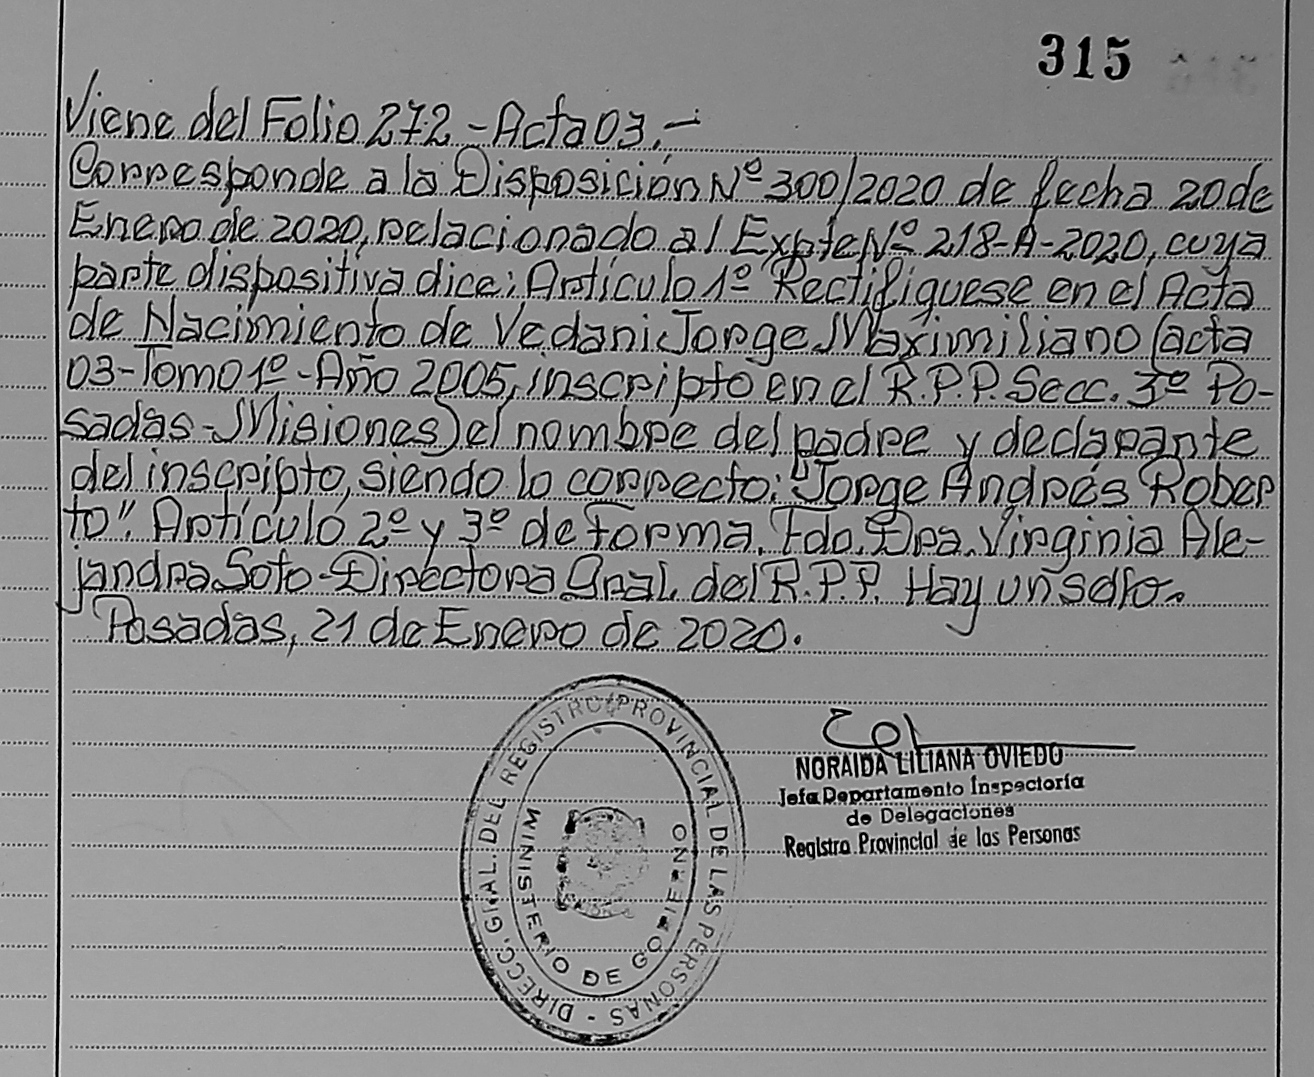 315
Viene del Folio 272 - Acta 03.-
Corresponde a la Disposición Nº 300/2020 de fecha 20 de
Enero de 2020, relacionado al Expte Nº 218-A-2020, cuya
parte dispositiva dice: Artículo 1º Rectifíquese en el Acta
de Nacimiento de Vedani Jorge Maximiliano (acta
03-Tomo 1º-Año 2005, inscripto en el R.P.P. Secc. 3º Po-
sadas-Misiones) el nombre del padre y declarante
del inscripto, siendo lo correcto: "Jorge Andrés Rober
to". Artículo 2º y 3º de Forma. Fdo. Dra. Virginia Ale-
jandra Soto-Directora Gral. del R.P.P. Hay un sello.
Posadas, 21 de Enero de 2020.
DIRECC. GRAL. DEL REGISTRO PROVINCIAL DE LAS PERSONAS -
MINISTERIO DE GOBIERNO
NORAIDA LILIANA OVIEDO
Jefa Departamento Inspectoría
de Delegaciones
Registro Provincial de las Personas